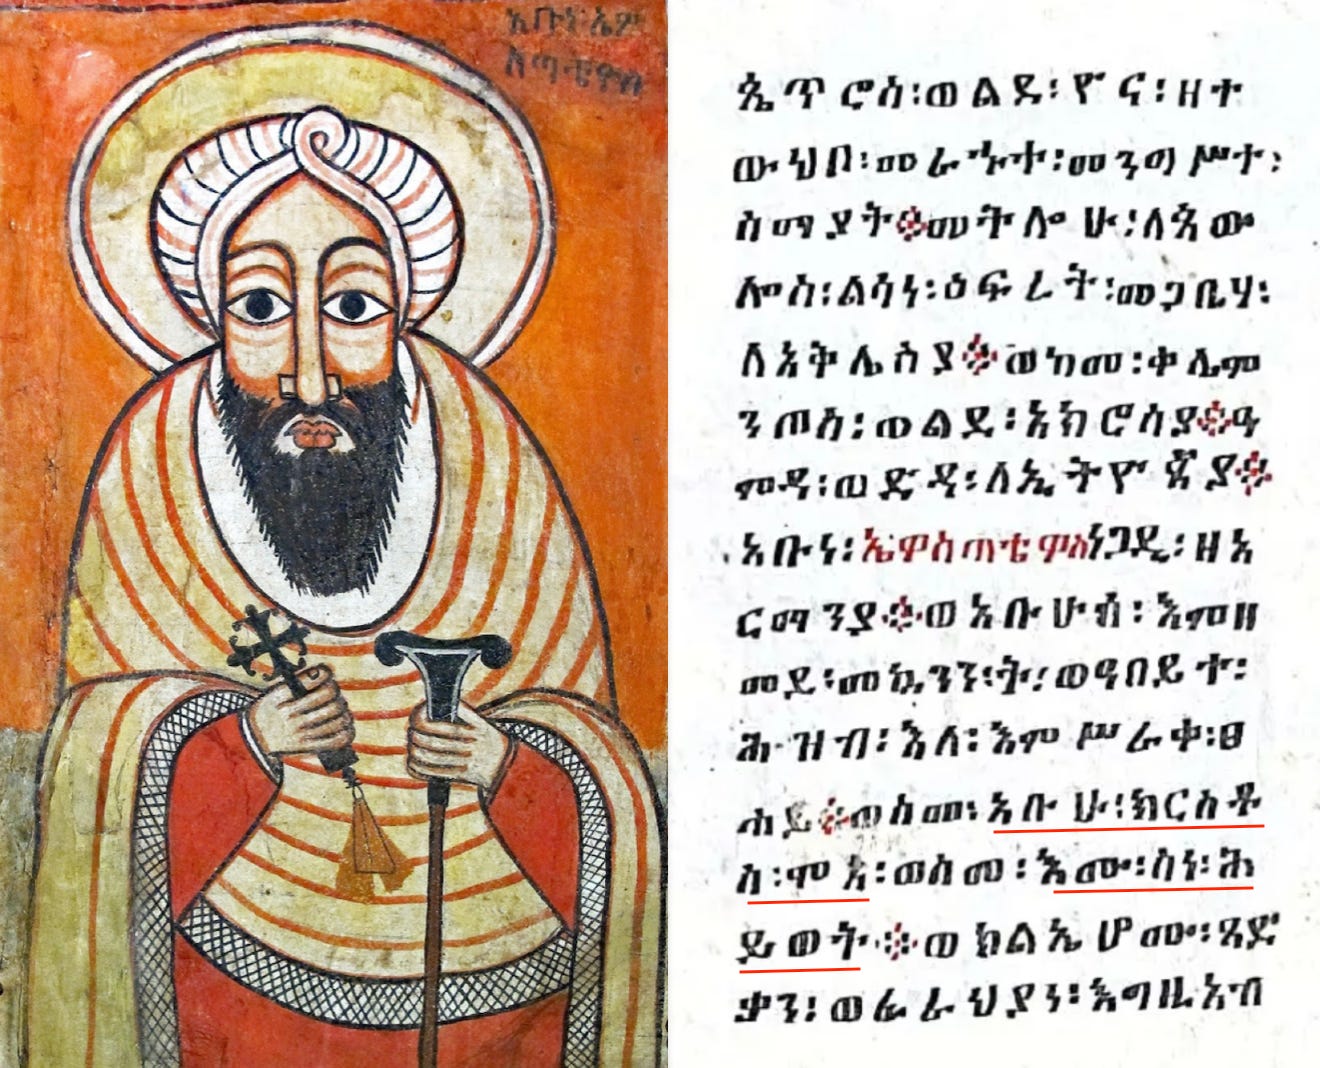 አቡነ፡ኤዎ
ስጣቴዎስ
ጴጥሮስ፡ወልደ፡ዮና፡ዘተ
ውህቦ፡መራኁተ፡መንግሥተ፡
ስማያት፨መትሎሁ፡ለጳው
ሎስ፡ልሳነ፡ዕፍረት፡መጋቤሃ፡
ለአቅሌስያ፨ወከመ፡ቀሌም
ንጦስ፡ወልደ፡አክሮሳያ፨ዓ
ምዳ፡ወድዳ፡ለኢትዮጵያ፨
አቡነ፡ኤዎስጣቴዎስነጋዲ፡ዘአ
ርማንያ፨ወአቡሁሰ፡እምዘ
መደ፡መኳንን፡ት፡ወዓበይተ፡
ሕዝብ፡እለ፡እምሥራቀ፡ፀ
ሐይ፨ወስመ፡አቡሁ፡ክርስቶ
ስ፡ሞአ፡ወስመ፡እሙ፡ስነ፡ሕ
ይወት፨ወክልኤሆሙ፡ጻድ
ቃን፡ወፈራህያን፡እግዚአብ